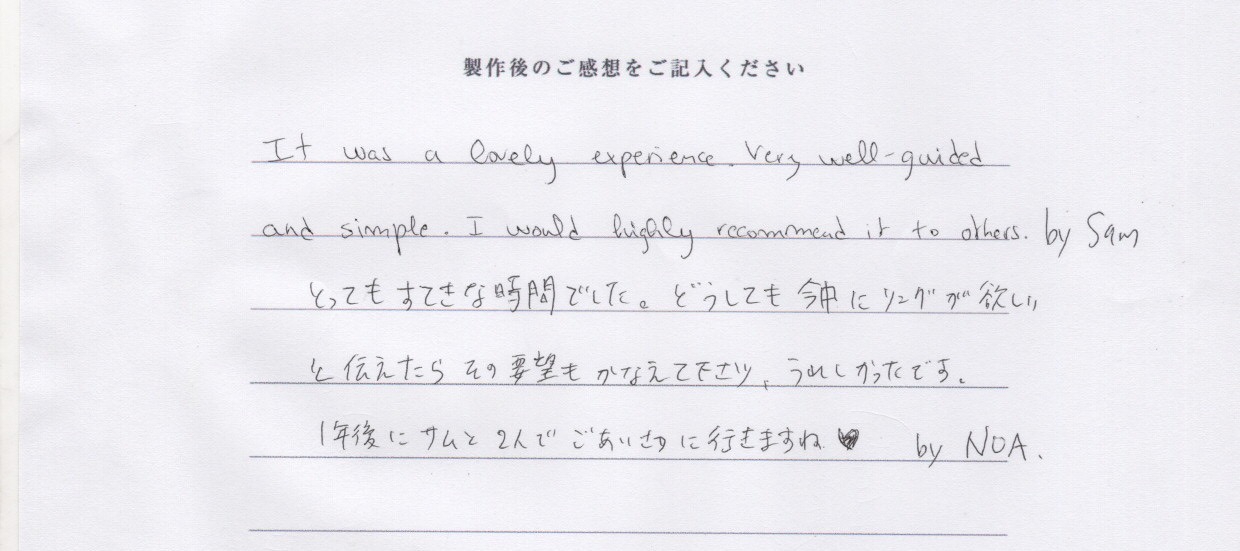 製作後のご感想をご記入ください
It was a lovely experience. Very well-guided
and simple. I would highly recommend it to others. by Sam
とってもすてきな時間でした。どうしても今中にリングが欲しい
と伝えたらその要望もかなえて下さり、うれしかったです。
1年後にサムと2人でごあいさつに行きますね♥ by NOA.